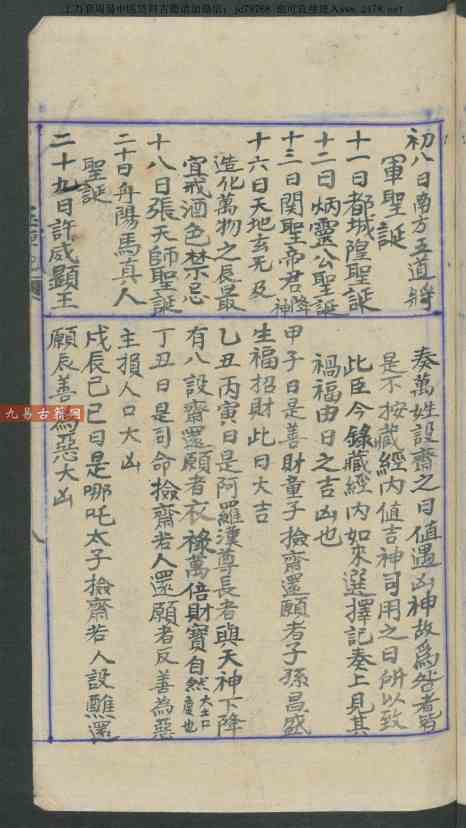 初八日南方五道將
軍聖誕
十一日都城隍聖誕
十二日炳靈公聖誕
十三日関聖帝君降神
十六日天地玄无及
造化萬物之辰最
宜戒酒色禁忌
十八日張天師聖誕
二十日丹陽馬真人
聖誕
二十九日許威顯王
奏萬姓設齋之日值遇凶神故為咎者皆
是不按藏經內值吉神司用之日所以致
此臣今錄藏經內如來選擇記奏上見其
禍福由日之吉凶也
甲子日是善財童子撿齋還願者子孫昌盛
生福招財此日大吉
乙丑丙寅日是阿羅漢尊長者與天神下降
有人設齋還願者衣祿萬倍財寶自然大吉口慶也
丁丑日是司命撿齋若人還願者反善為惡
主損人口大凶
戌辰己巳日是哪吒太子撿齋若人設醮還
願辰善為惡大凶
九易古籍网
八